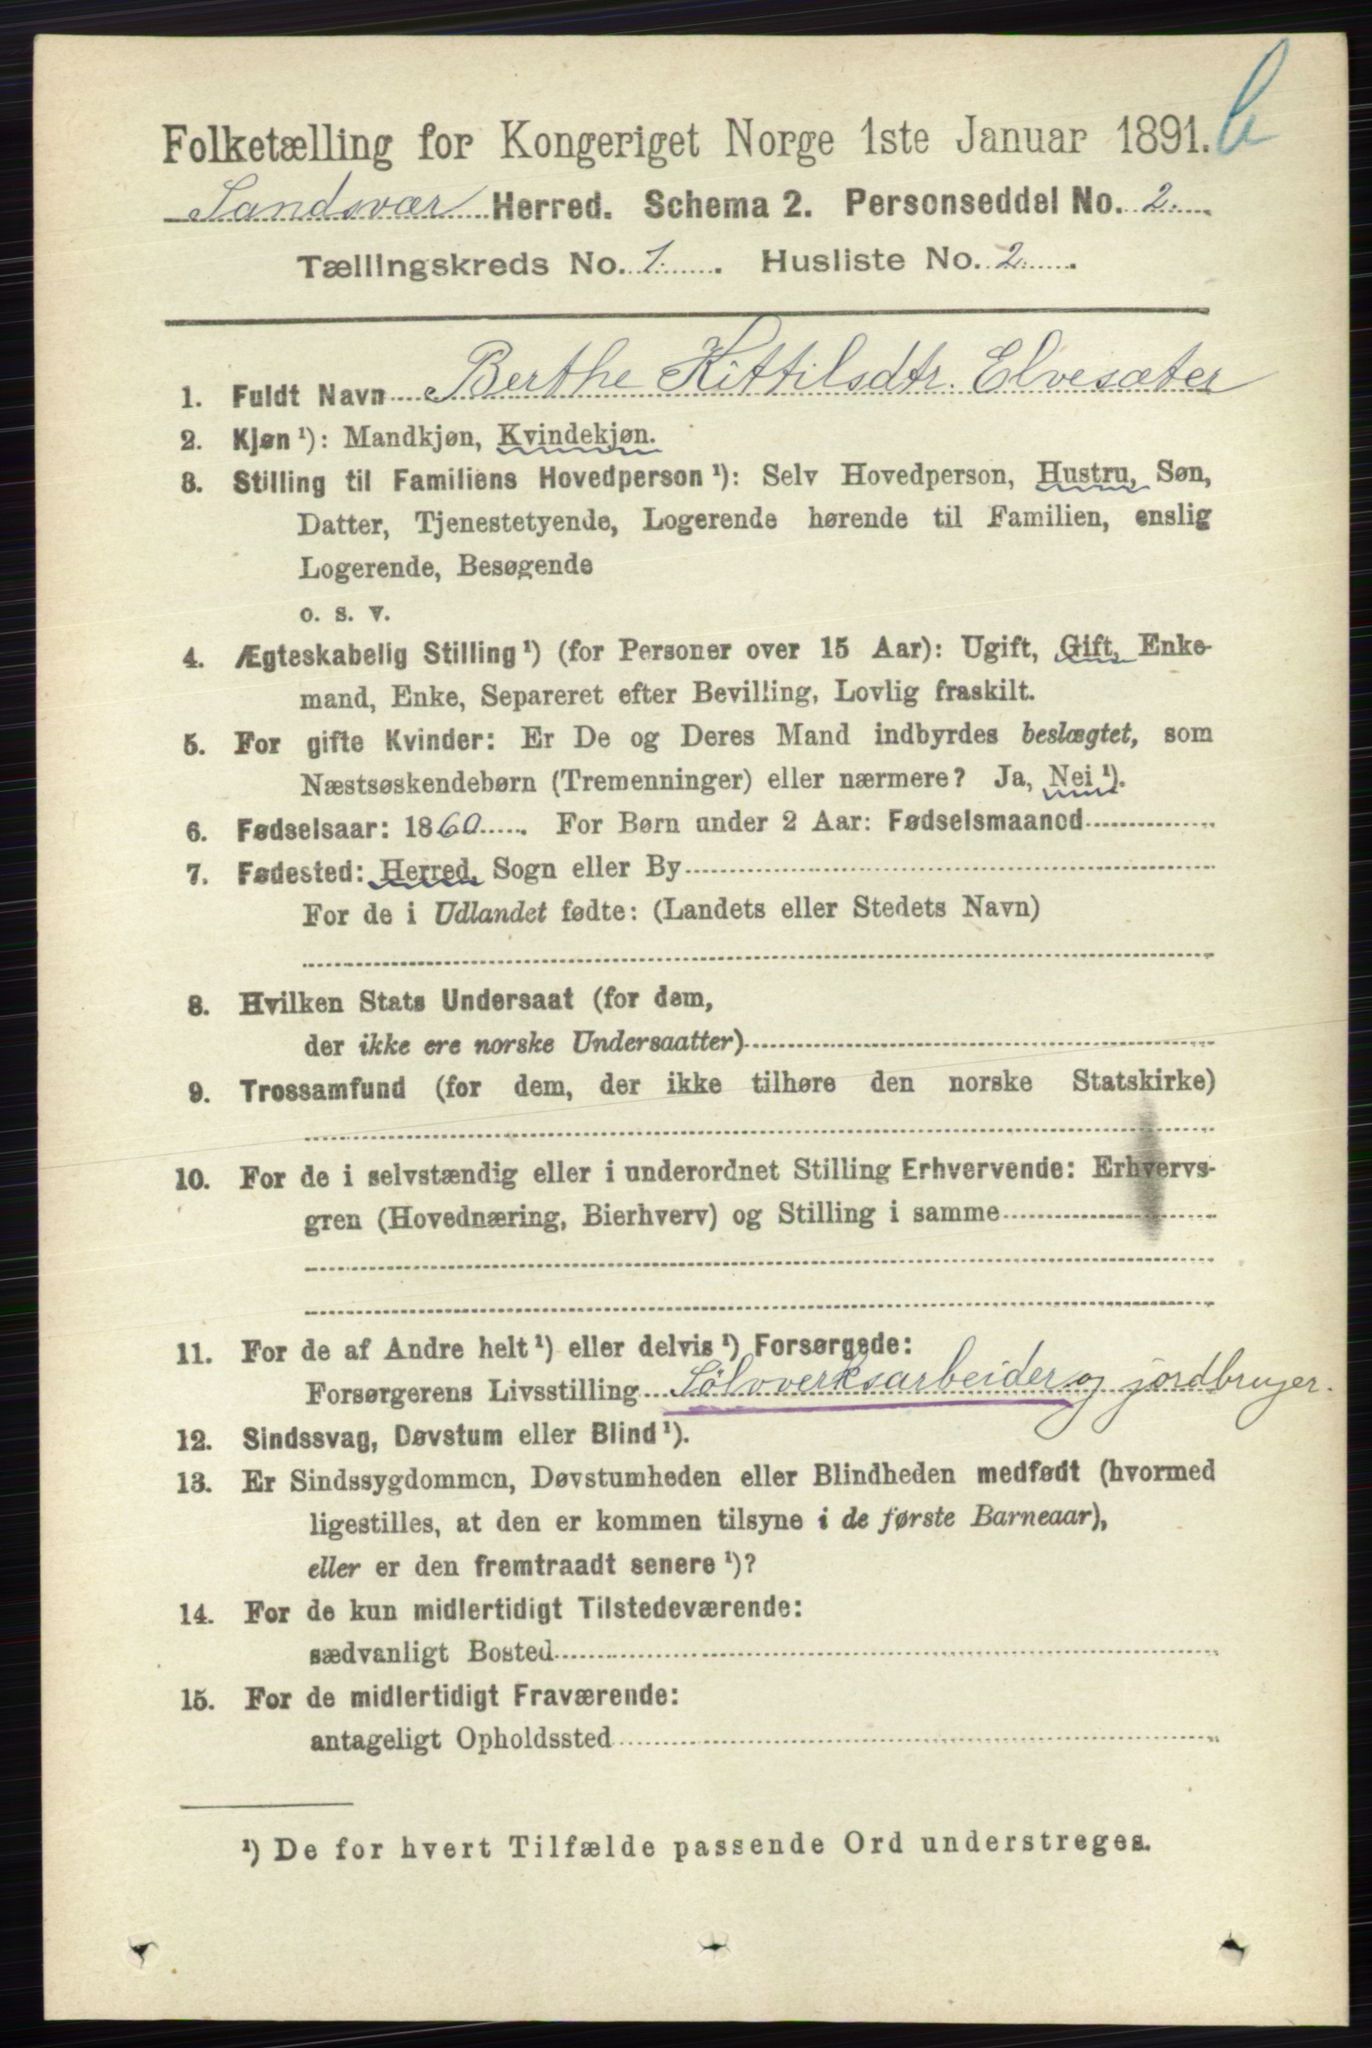 b
Folketælling for Kongeriget Norge 1ste Januar 1891.
Sandsvær Herred. Schema 2. Personseddel No. 2.
Tællingskreds No. 1. Husliste No. 2.
1. Fuldt Navn Berthe Kittilsdtr. Elvesæter
2. Kjøn ¹): Mandkjøn, Kvindekjøn.
3. Stilling til Familiens Hovedperson ¹): Selv Hovedperson, Hustru, Søn,
Datter, Tjenestetyende, Logerende hørende til Familien, enslig
Logerende, Besøgende
o. s. v.
4. Ægteskabelig Stilling ¹) (for Personer over 15 Aar): Ugift, Gift, Enke-
mand, Enke, Separeret efter Bevilling, Lovlig fraskilt.
5. For gifte Kvinder: Er De og Deres Mand indbyrdes beslægtet, som
Næstsøskendebørn (Tremenninger) eller nærmere? Ja, Nei ¹).
6. Fødselsaar: 1860. For Børn under 2 Aar: Fødselsmaaned
7. Fødested: Herred, Sogn eller By
For de i Udlandet fødte: (Landets eller Stedets Navn)
8. Hvilken Stats Undersaat (for dem,
der ikke ere norske Undersaatter)
9. Trossamfund (for dem, der ikke tilhøre den norske Statskirke)
10. For de i selvstændig eller i underordnet Stilling Erhvervende: Erhvervs-
gren (Hovednæring, Bierhverv) og Stilling i samme
11. For de af Andre helt ¹) eller delvis ¹) Forsørgede:
Forsørgerens Livsstilling Sölvverksarbeider og jordbruger.
12. Sindssvag, Døvstum eller Blind ¹).
13. Er Sindssygdommen, Døvstumheden eller Blindheden medfødt (hvormed
ligestilles, at den er kommen tilsyne i de første Barneaar),
eller er den fremtraadt senere ¹)?
14. For de kun midlertidigt Tilstedeværende:
sædvanligt Bosted
15. For de midlertidigt Fraværende:
antageligt Opholdssted
¹) De for hvert Tilfælde passende Ord understreges.